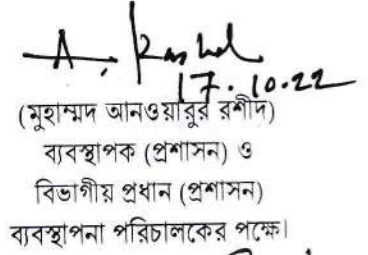 A. Rashed
17.10.22
(মুহাম্মদ আনওয়ারুর রশীদ)
ব্যবস্থাপক (প্রশাসন) ও
বিভাগীয় প্রধান (প্রশাসন)
ব্যবস্থাপনা পরিচালকের পক্ষে।